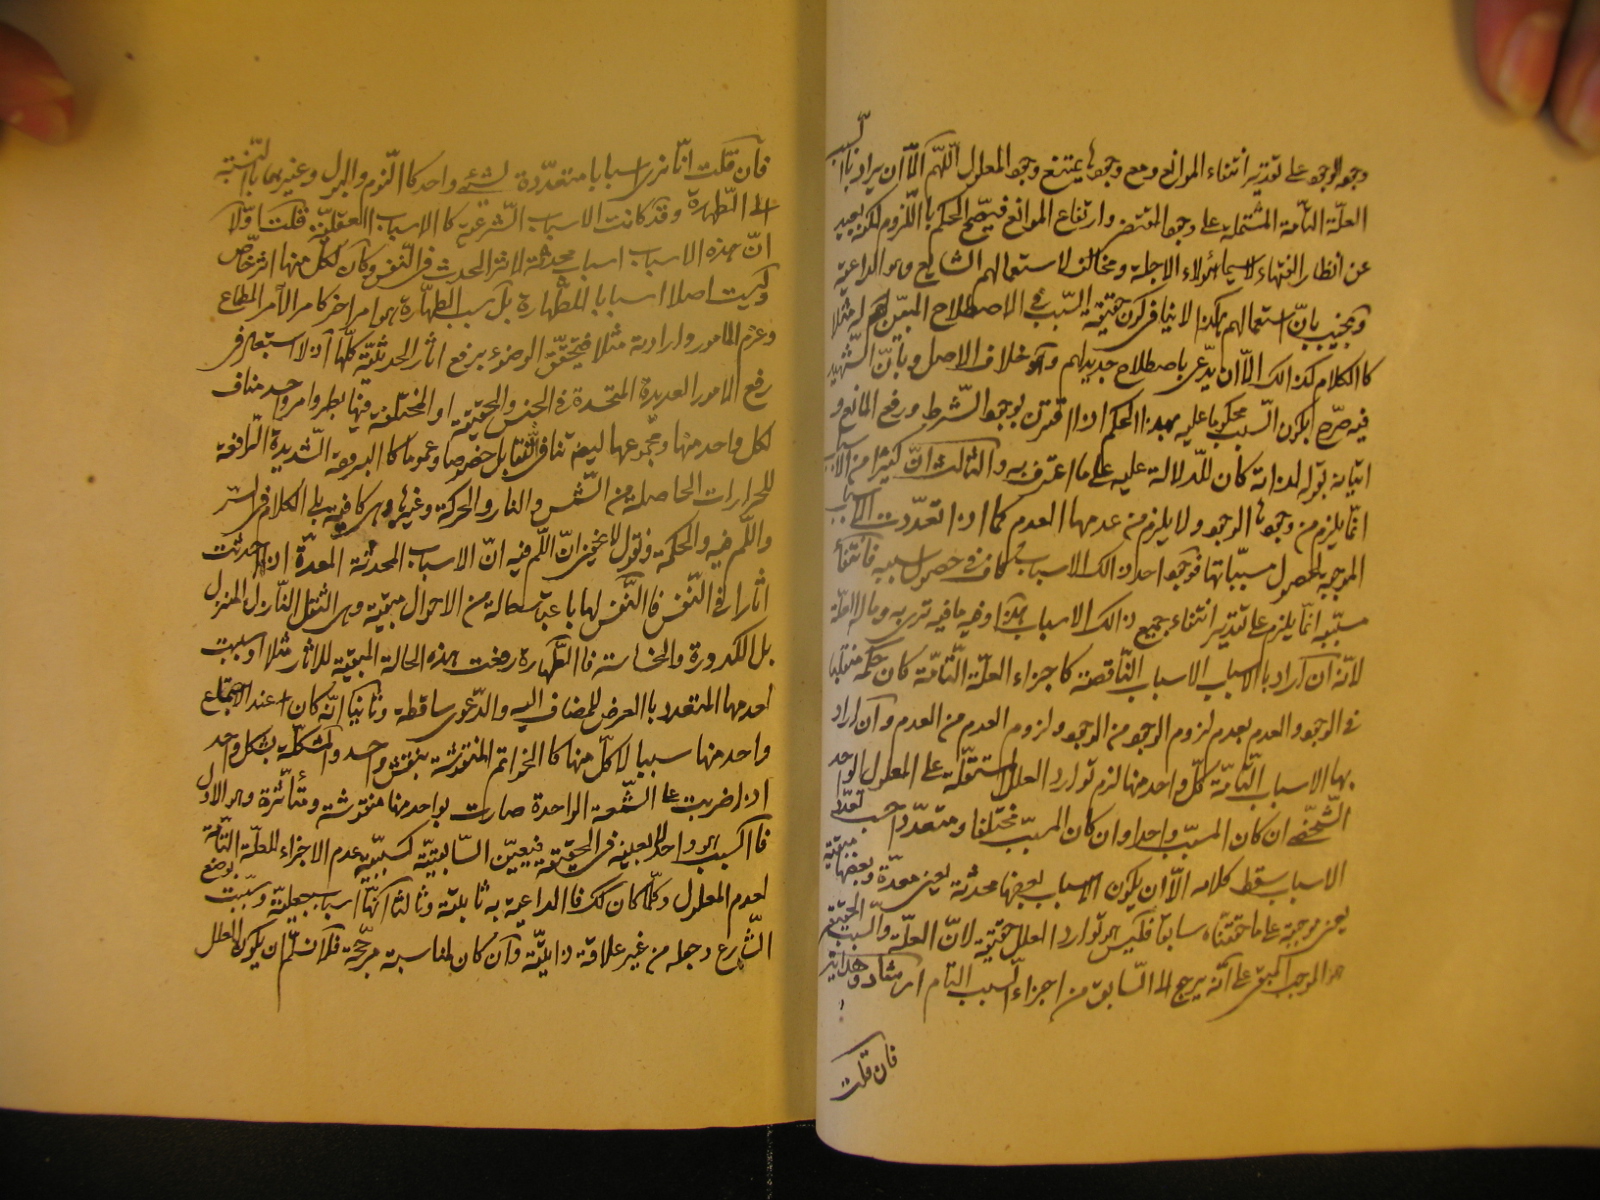 وجود الوجود على تقدير انتفاء الموانع ومع وجودها يمتنع وجود المعلول اللّهم الّا ان يراد بالسبب
العلّة التامة المشتملة على وجود المقتضى وارتفاع الموانع فيصح الحكم باللزوم لكنه بعيد
عن انظار الفقهاء لاسيما هؤلاء الاجلة ومخالف لاستعمالهم الشايع
ويجيب بانّ استعمالهم هكذا لا ينافى كون حقيقة السبب فى الاصطلاح المبين لهم له مثلا
كالكلام كذالك الّا ان يدّعى باصطلاح جديد لهم وهو خلاف الاصل وبانّ الشهيد
فيه صرّح بكون السبب محكوما عليه بهذا الحكم اذا اقترن بوجود الشرط ورفع المانع و
اتيانه بقوله لذاته كان للدلالة عليه على ما اعترف به والثالث انّ كثيرا من الاسباب
انما يلزم من وجودها الوجود ولا يلزم من عدمها العدم كما اذا تعدّدت الاسباب
الموجبة لحصول مسبباتها فوجود احد ذالك الاسباب كاف فى حصول مسببه فانتفاء
مسببه انما يلزم على تقدير انتفاء جميع ذالك الاسباب هذا وفيه ما فيه
لانّه ان اراد بالاسباب الاسباب الناقصة كاجزاء العلّة التّامّة كان حكمه منقلبا
فى الوجود والعدم بعدم لزوم الوجود من الوجود ولزوم العدم من العدم وان اراد
بها الاسباب التّامّة كلّ واحد منها لزم توارد العلل المستقلّة على المعلول الواحد
الشخصى ان كان المسبّب واحدا وان كان المسبّب مختلفا ومتعدّدا حسب تعدّد
الاسباب سقط كلامه الّا ان يكون الاسباب بعضها محدثة يعنى معدّة وبعضها مبقية
يعنى موجبة على ما حققناه سابقا فليس هو توارد العلل حقيقة لانّ العلّة والسبب الحقيقى
هو الموجب المبقى على انّه يرجع الى السابق من اجزاء السبب التام
فان قلت
فان قلت انّا نرى اسبابا متعدّدة لشئ واحد كالنوم والبول وغيرهما بالنسبة
الى الطهارة وقد كانت الاسباب الشرعية كالاسباب العقليّة قلت اوّلا
انّ هذه الاسباب اسباب محدثة لاثر الحدث فى النفس وكان لكل منها اثر خاص
وليست اصلا اسبابا للطّهارة بل سبب الطهارة هو امر اخر كامر الآمر المطاع
وعزم المامور وارادته مثلا فيتحقّق الوضوء برفع اثار الحدثيّة كلّها اذ لا استبعاد فى
رفع الامور العديدة المتحدة فى الجنس والحقيقة او المختلفة فيها بطروّ امر واحد مناف
لكل واحد منها ومجموعها تقابل خصوصا وعموما كالبرودة الشديدة الرافعة
للحرارات الحاصلة من الشّمس والنار والحركة وغيرها وهى كافية بل الكلام فى السّر
واللّم فيه والحكمة ونقول لا يخفى انّ اللّم فيه انّ الاسباب المحدثة المعدّة اذا حدثت
اثارا فى النّفس فالنّفس لها باعتبار حالة من الاحوال مبقية وهى الثقل النازل المنزل
بل الكدورة والخباسة فالطّهارة رفعت هذه الحالة المبقية للاثار مثلا او سببت
احدهما المتعدد بالعرض للمضاف اليه والدّعوى ساقطة وثانيا انّه كان عند الاجتماع
واحد منها سببا لا كلّ منها كالخواتم المنقوشة بنقش واحد والمشكّلة بشكل واحد
اذا ضربت على الشّمعة الواحدة صارت بواحد منها منقوشة ومتأثرة وهو الاول
فالسبب هو واحد لا بعينه فى الحقيقة فيعيّن السّابقيّة كسببيّة عدم الاجزاء للعلّة التّامّة
لعدم المعلول وكلّما كان كذلك فالداعية به ثابتة وثالثا انّها اسباب جعليّة وسببت بوضع
الشّارع وجعله من غير علاقة ذاتيّة وان كان لمناسبة مرجّحة فلا نسلّم ان يكون العلل